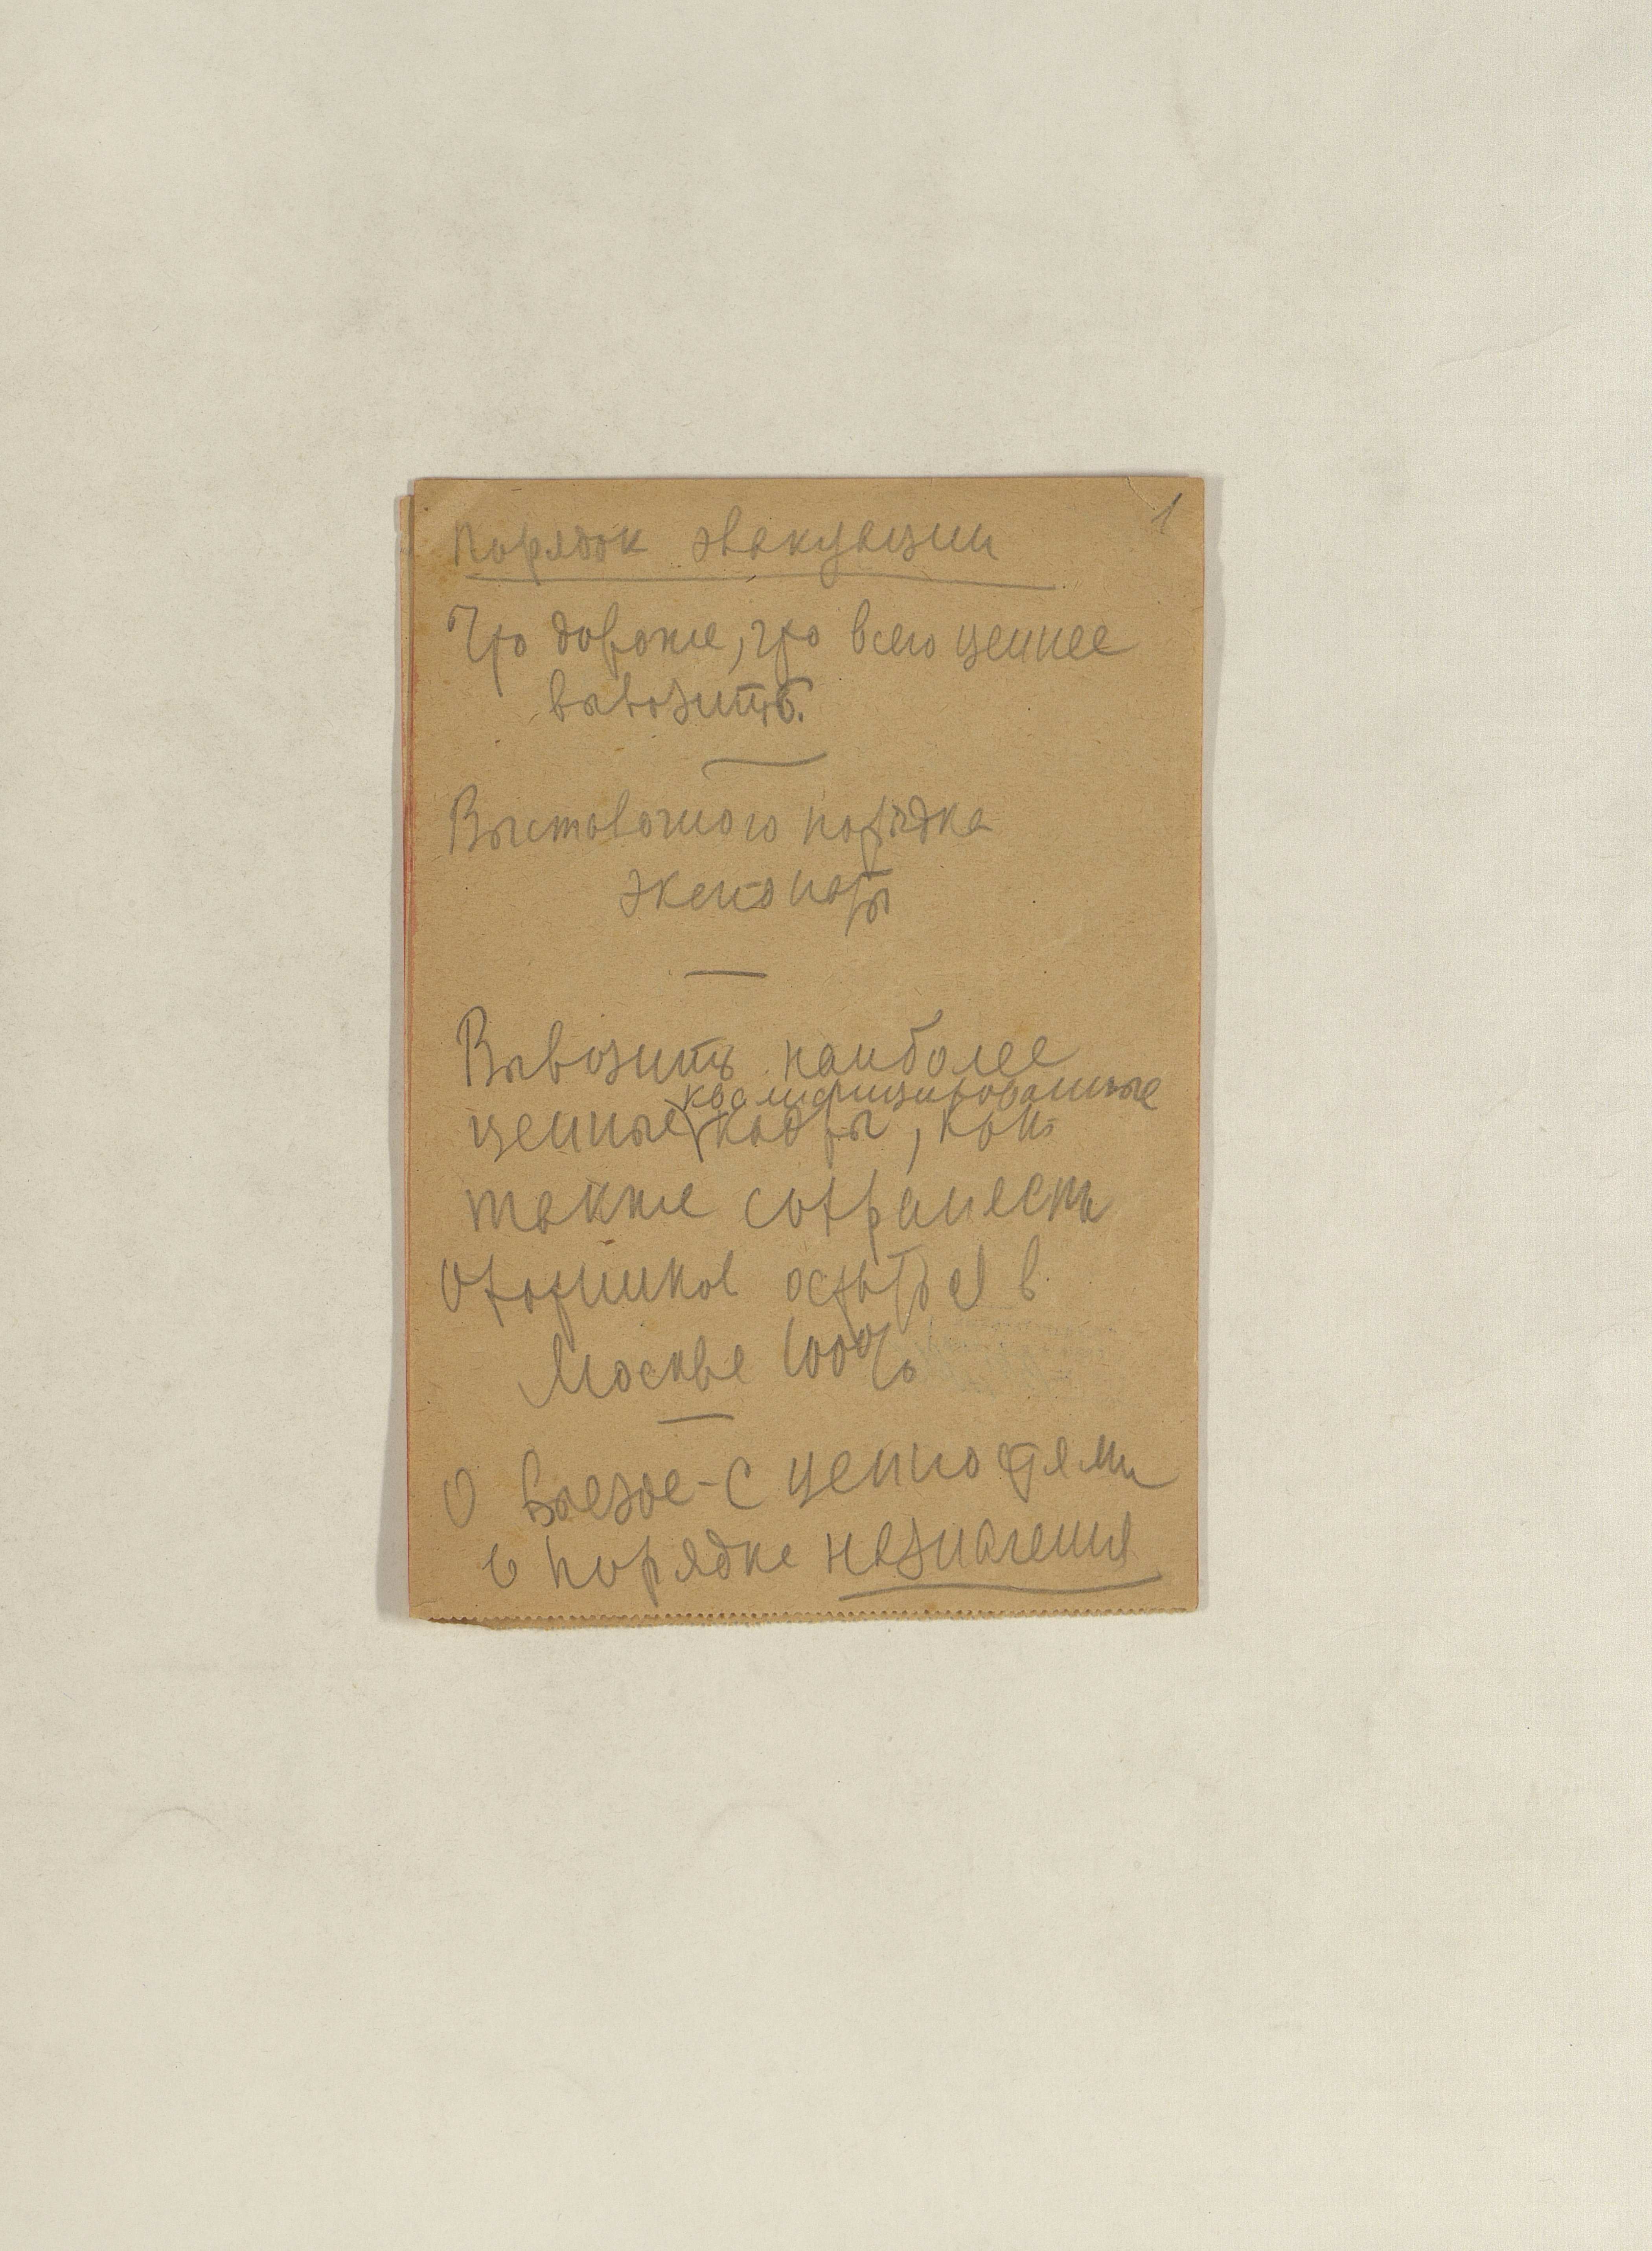 1
Порядок эвакуации
Что дороже, что всего ценнее
вывозить.
Выставочного порядка
экспонаты
Вывозить наиболее
квалифицированные
ценные кадры,
также сохранность
Охотников остаться в
Москве 100%
О выезде - с ценностями
в порядке назначения